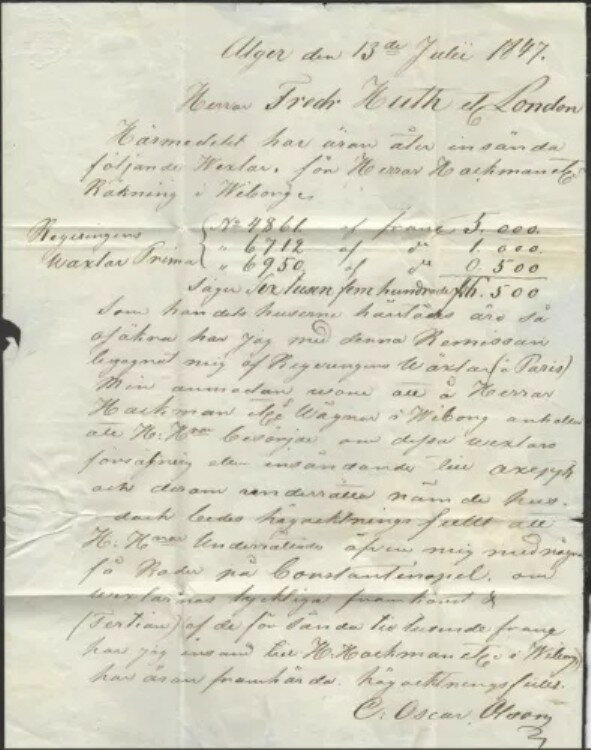 Alger den 13de Julii 1847.
Herrar Fredr Huth et C London
Härmedelst har äran åter insända
följande Wexlar, för Herrar Hackman etC
Räkning i Wiborg,
Regeringens Wäxlar Prima
No 4861. of franc 5.000.
" 6712 of do 1.000.
" 6950 of do 0.500
Säger Sex tusen fem hundrade 500
Som handelshuserne härstädes äro så
har jag med denna Remissan
begagnat mig af Regeringens Wäxlar (à Paris)
Min anmodan vore att å Herrar
Hackman etC Wägnar i Wiborg anhålla
att H: Hrar besörja om dessa wexlars
försäljning eller insändande till
och derom underrätta nämde hus.
dock bedes högacktningsfullt att
H: Hrar Underrättade äfven mig med några
få Rader på Constantinopel, om
wexlarnas lyckliga framkomst &
(Tertian) af de för sända tio tusende franc
har jag insänd till H. Hackman etC i Wiborg
har äran framhärda. högacktningsfullt.
C: Oscar Olsson